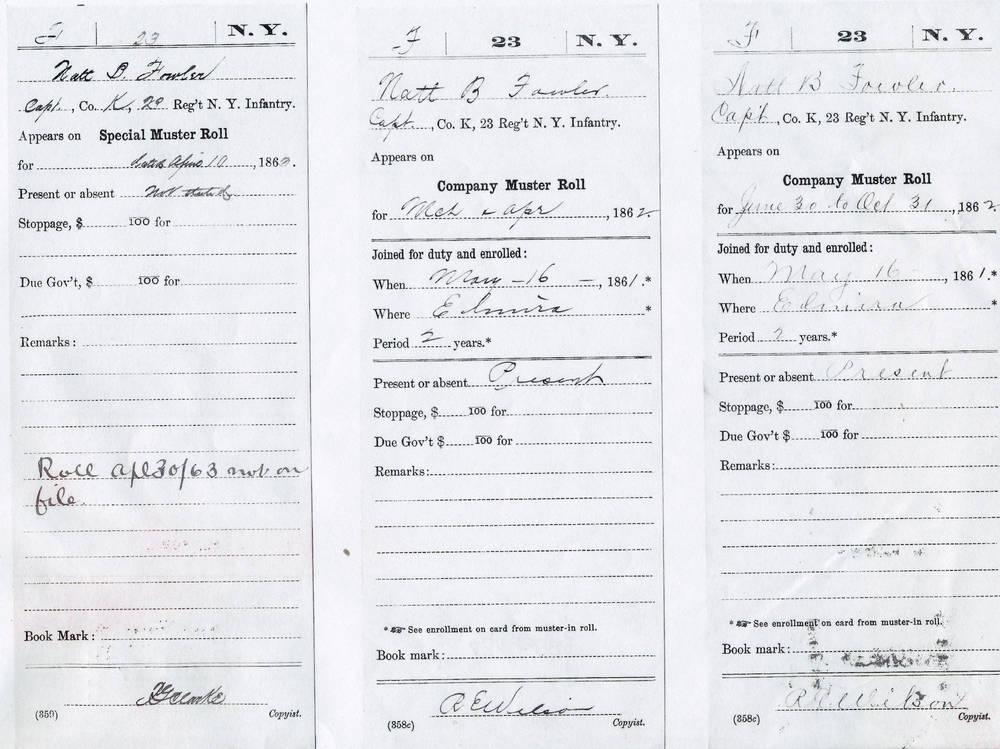 F | 23 | N. Y.
Natt B. Fowler
Capt., Co. K, 23 Reg't N. Y. Infantry.
Appears on Special Muster Roll
for dated April 10, 1863.
Present or absent Not stated
Stoppage, $ 100 for
Due Gov't, $ 100 for
Remarks:
Roll Apl 30/63 not on
file.
Book Mark:
(359) Copyist.
F | 23 | N. Y.
Natt B Fowler.
Capt., Co. K, 23 Reg't N. Y. Infantry.
Appears on
Company Muster Roll
for Mch & Apr, 1862.
Joined for duty and enrolled:
When May 16, 1861.*
Where Elmira *
Period 2 years.*
Present or absent Present
Stoppage, $ 100 for
Due Gov't $ 100 for
Remarks:
* ☞ See enrollment on card from muster-in roll.
Book mark:
R E Wilson
(358c) Copyist.
F | 23 | N. Y.
Natt B Fowler.
Capt, Co. K, 23 Reg't N. Y. Infantry.
Appears on
Company Muster Roll
for June 30 to Oct 31, 1862
Joined for duty and enrolled:
When May 16, 1861.*
Where Elmira *
Period 2 years.*
Present or absent Present
Stoppage, $ 100 for
Due Gov't $ 100 for
Remarks:
* ☞ See enrollment on card from muster-in roll.
Book mark:
R E Wilson
(358c) Copyist.